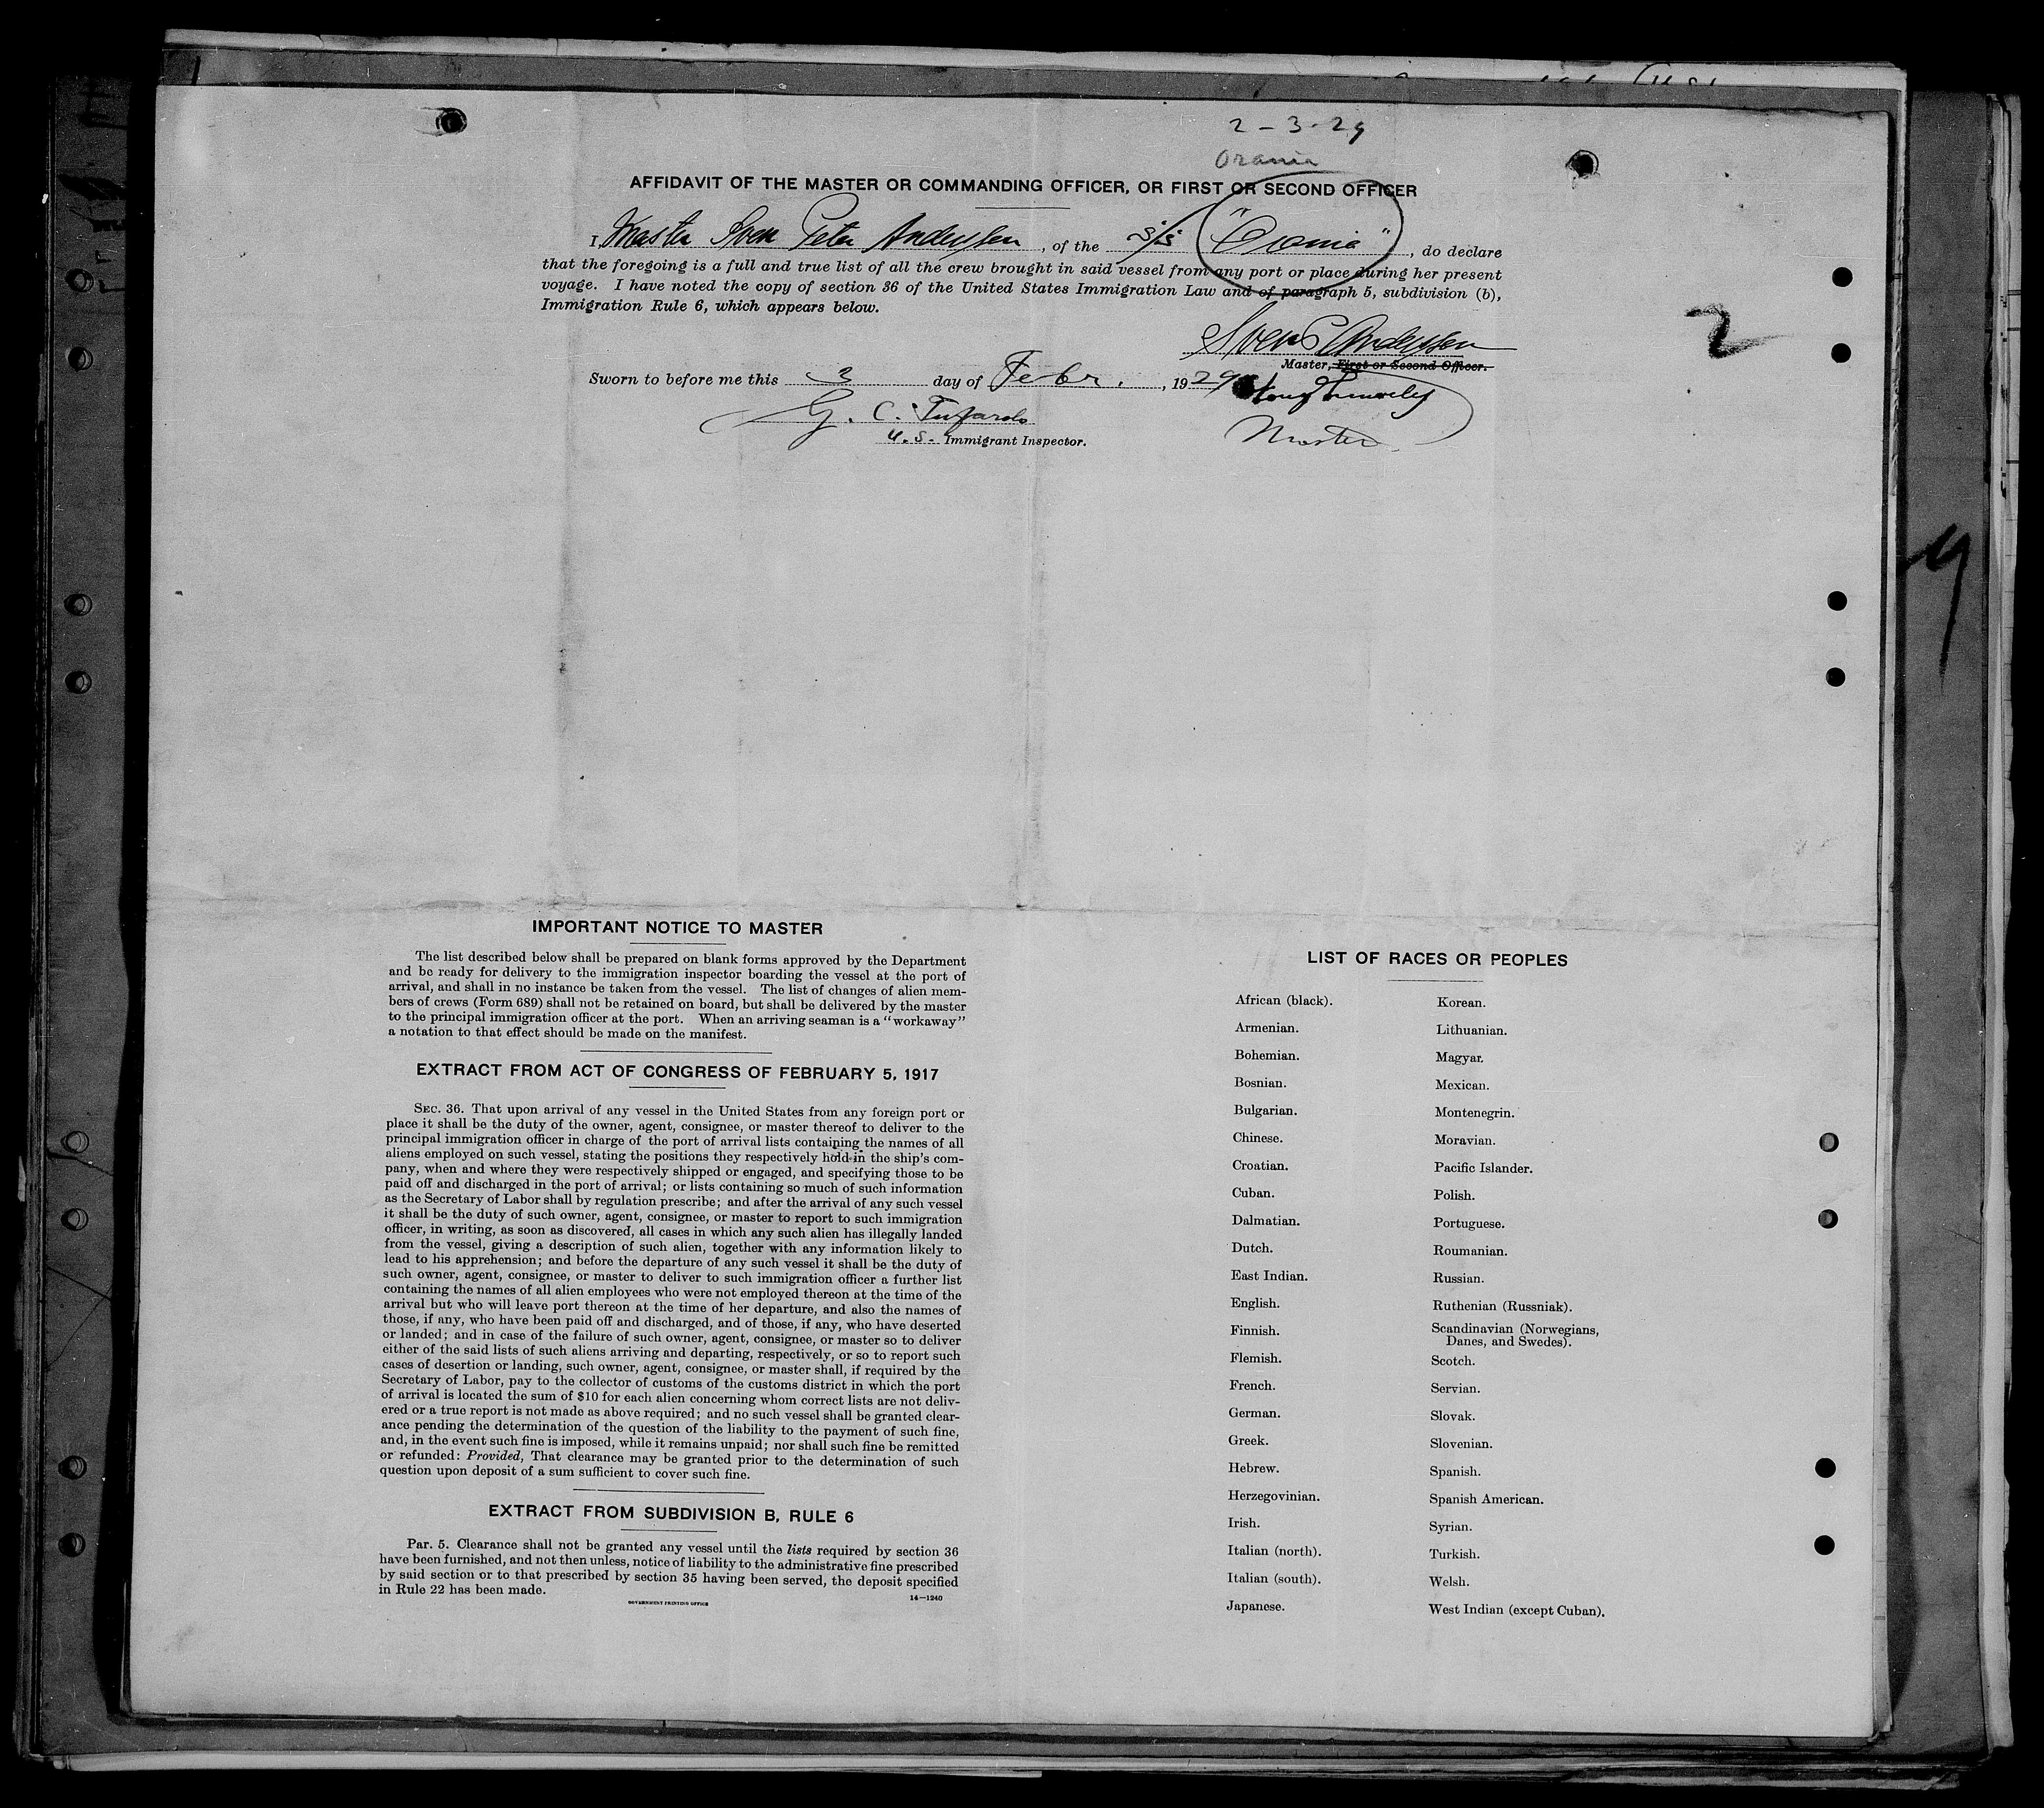 2-3-29
Orania
AFFIDAVIT OF THE MASTER OR COMMANDING OFFICER, OR FIRST OR SECOND OFFICER
I, Master Sven Peter Anderssen, of the S/S "Orania", do declare
that the foregoing is a full and true list of all the crew brought in said vessel from any port or place during her present
voyage. I have noted the copy of section 36 of the United States Immigration Law and of paragraph 5, subdivision (b),
Immigration Rule 6, which appears below.
Sven P Anderssen
Master, First or Second Officer.
2
Sworn to before me this 3 day of Febr., 1929
G. C.
U.S. Immigrant Inspector.
Master
4
IMPORTANT NOTICE TO MASTER
The list described below shall be prepared on blank forms approved by the Department
and be ready for delivery to the immigration inspector boarding the vessel at the port of
arrival, and shall in no instance be taken from the vessel. The list of changes of alien mem-
bers of crews (Form 689) shall not be retained on board, but shall be delivered by the master
to the principal immigration officer at the port. When an arriving seaman is a "workaway"
a notation to that effect should be made on the manifest.
EXTRACT FROM ACT OF CONGRESS OF FEBRUARY 5, 1917
SEC. 36. That upon arrival of any vessel in the United States from any foreign port or
place it shall be the duty of the owner, agent, consignee, or master thereof to deliver to the
principal immigration officer in charge of the port of arrival lists containing the names of all
aliens employed on such vessel, stating the positions they respectively hold in the ship's com-
pany, when and where they were respectively shipped or engaged, and specifying those to be
paid off and discharged in the port of arrival; or lists containing so much of such information
as the Secretary of Labor shall by regulation prescribe; and after the arrival of any such vessel
it shall be the duty of such owner, agent, consignee, or master to report to such immigration
officer, in writing, as soon as discovered, all cases in which any such alien has illegally landed
from the vessel, giving a description of such alien, together with any information likely to
lead to his apprehension; and before the departure of any such vessel it shall be the duty of
such owner, agent, consignee, or master to deliver to such immigration officer a further list
containing the names of all alien employees who were not employed thereon at the time of the
arrival but who will leave port thereon at the time of her departure, and also the names of
those, if any, who have been paid off and discharged, and of those, if any, who have deserted
or landed; and in case of the failure of such owner, agent, consignee, or master so to deliver
either of the said lists of such aliens arriving and departing, respectively, or so to report such
cases of desertion or landing, such owner, agent, consignee, or master shall, if required by the
Secretary of Labor, pay to the collector of customs of the customs district in which the port
of arrival is located the sum of $10 for each alien concerning whom correct lists are not deliv-
ered or a true report is not made as above required; and no such vessel shall be granted clear-
ance pending the determination of the question of the liability to the payment of such fine,
and, in the event such fine is imposed, while it remains unpaid; nor shall such fine be remitted
or refunded: Provided, That clearance may be granted prior to the determination of such
question upon deposit of a sum sufficient to cover such fine.
EXTRACT FROM SUBDIVISION B, RULE 6
Par. 5. Clearance shall not be granted any vessel until the lists required by section 36
have been furnished, and not then unless, notice of liability to the administrative fine prescribed
by said section or to that prescribed by section 35 having been served, the deposit specified
in Rule 22 has been made.
GOVERNMENT PRINTING OFFICE
14-1240
LIST OF RACES OR PEOPLES
African (black).
Armenian.
Bohemian.
Bosnian.
Bulgarian.
Chinese.
Croatian.
Cuban.
Dalmatian.
Dutch.
East Indian.
English.
Finnish.
Flemish.
French.
German.
Greek.
Hebrew.
Herzegovinian.
Irish.
Italian (north).
Italian (south).
Japanese.
Korean.
Lithuanian.
Magyar.
Mexican.
Montenegrin.
Moravian.
Pacific Islander.
Polish.
Portuguese.
Roumanian.
Russian.
Ruthenian (Russniak).
Scandinavian (Norwegians,
Danes, and Swedes).
Scotch.
Servian.
Slovak.
Slovenian.
Spanish.
Spanish American.
Syrian.
Turkish.
Welsh.
West Indian (except Cuban).